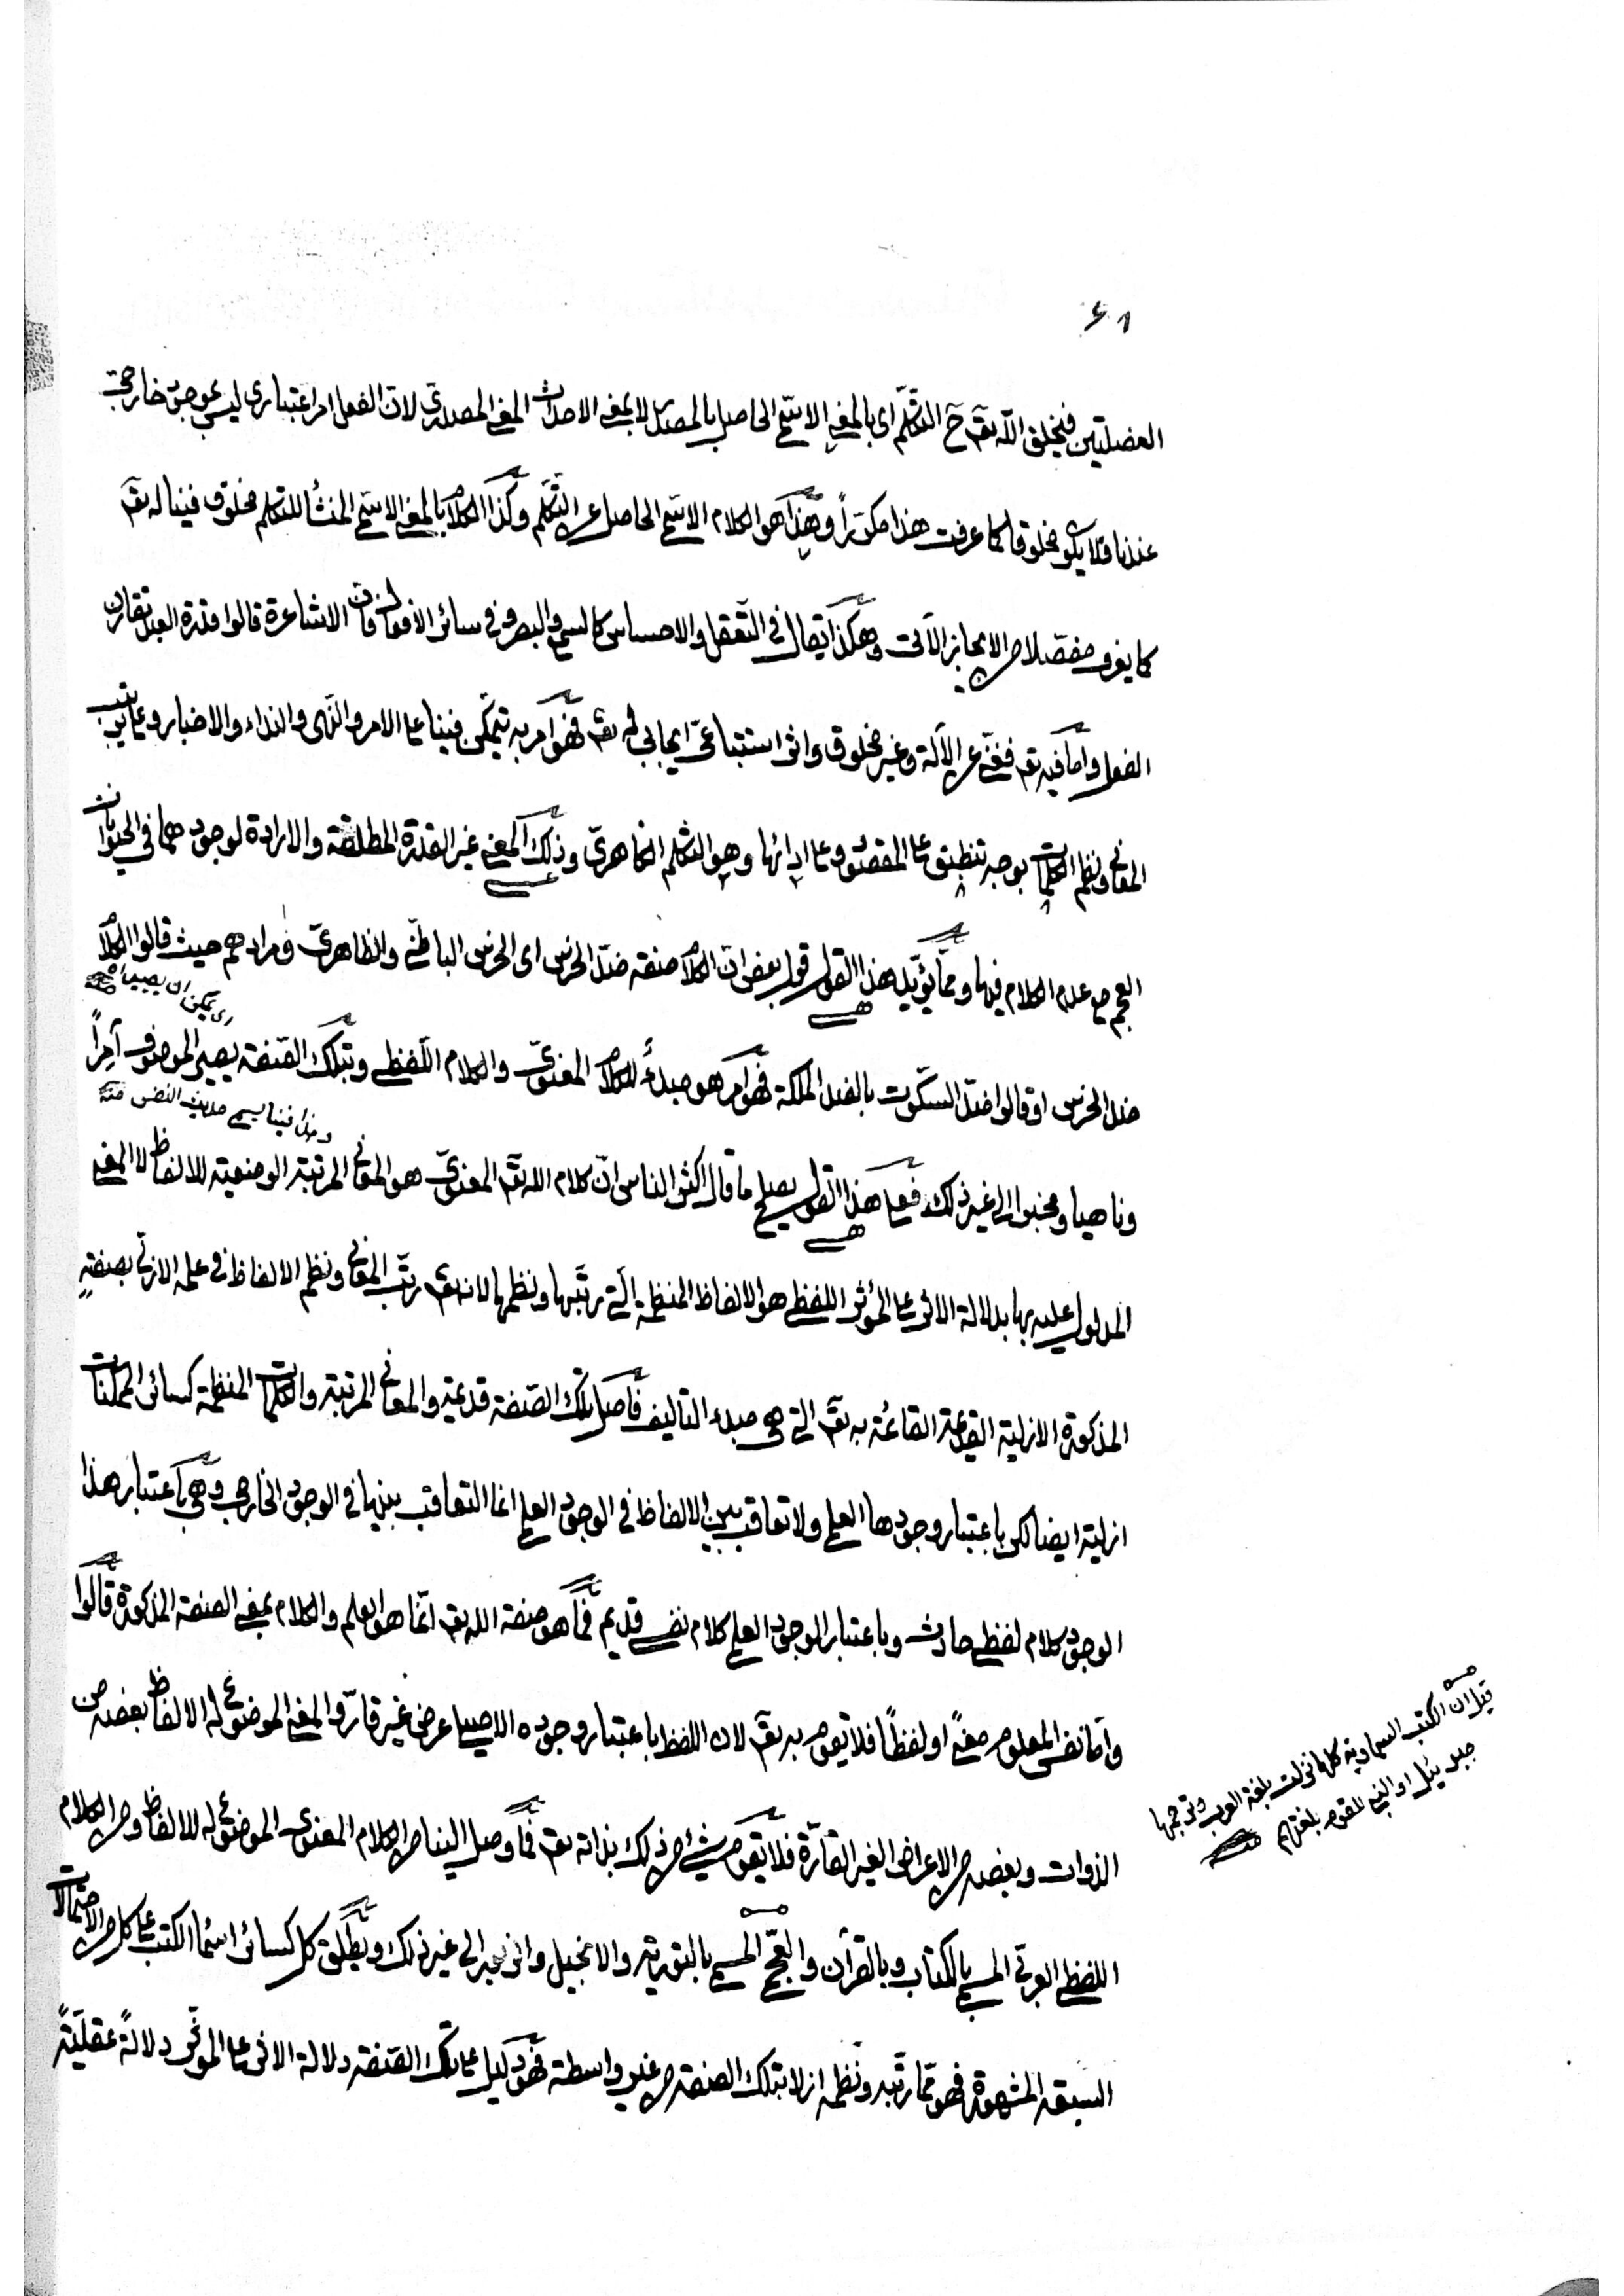 العضلتين فيخلق الله تع ح التكلم اى بالمعنى الاسمى الحاصل بالمصدر لا بمعنى الاحداث المعنى المصدرى لان الفعل امر اعتبارى ليس بموجود خارجى
عندنا فلا يكون مخلوقا كما عرفت هذا مكررا وهذا هو الكلام الاسمى الحاصل عن التكلم وكذا الكلام بالمعنى الاسمى المنشأ للتكلم مخلوق فينا له تع
كما يعرف مفصلا من الايجاز الآتى وهكذا يقال فى التعقل والاحساس كالسمع والبصر وفى سائر الافعال فان الاشاعرة قالوا قدرة العبد تقارن
الفعل واما فيه تع فغنى عن الآلة وغير مخلوق واثر استتباعى ايجابى له تع فهو امر به يتمكن فينا على الامر والنهى والنداء والاخبار وعلى ترتيب
المعانى ونظم الكلمات بوجه تنطبق على المقصود وعلى ادائها وهو التكلم الظاهرى وذلك المعنى غير القدرة المطلقة والارادة لوجودهما فى الحيوانات
العجم مع عدم الكلام فيها ومما يؤيد هذا القول قول بعض ان الكلام صفة ضد الخرس اى الخرس الباطنى والظاهرى ومرادهم حيث قالوا الكلام
اى يمكن ان يصير
ضد الخرس او قالوا ضد السكوت بالضد الملكة فهو امر هو مبدأ للكلام المعنوى والكلام اللفظى وبتلك الصفة يصير الموصوف آمراً
وهذا فينا يسمى حديث النفس منه
وناهيا ومخبرا الى غير ذلك فعلى هذا القول يصلح ما قال اكثر الناس ان كلام الله تع المعنوى هو المعانى المرتبة الوضعية للالفاظ لا المعنى
المدلول عليه بها بدلالة الاثر على المؤثر واللفظى هو الالفاظ المنظمة التى رتبها ونظمها لانه تع رتب المعانى ونظم الالفاظ فى علمه الازلى بصفته
المذكورة الازلية القديمة القائمة به تع التى هى مبدء التأليف فاصل تلك الصفة قديمة والمعانى المرتبة والكلمات المنظمة كسائر الممكنات
ازلية ايضا لكن باعتبار وجودها العلمى ولا تعاقب بين الالفاظ فى الوجود العلمى انما التعاقب بينها فى الوجود الخارجى وهى باعتبار هذا
الوجود كلام لفظى حادث وباعتبار الوجود العلمى كلام نفسى قديم فما هو صفة الله تع انما هو العلم والكلام بمعنى الصفة المذكورة قالوا
واما نفس المعلوم معنًى او لفظًا فلا يقوم به تع لان اللفظ باعتبار وجوده الاصيل عرض غير قار والمعنى الموضوع له الالفاظ بعضه من
الذوات وبعضه من الاعراض الغير القارة فلا يقوم شئ من ذلك بذاته تع فما وصل الينا من الكلام المعنوى الموضوع له للالفاظ ومن الكلام
اللفظى العربى المسمى بالكتاب وبالقرآن والعجمى المسمى بالتورية والانجيل والزبور الى غير ذلك ويطلق كل كسائر اسماء الكتب على كل من الاحتمالات
السبعة المشهورة فهو مما رتبه ونظمه ازلا بتلك الصفة من غير واسطة فهو دليل على تلك الصفة دلالة الاثر على المؤثر دلالةً عقليةً
قيل ان الكتب السماوية كلها نزلت بلغة العرب وترجمها
جبريل او النبى للقوم بلغتهم